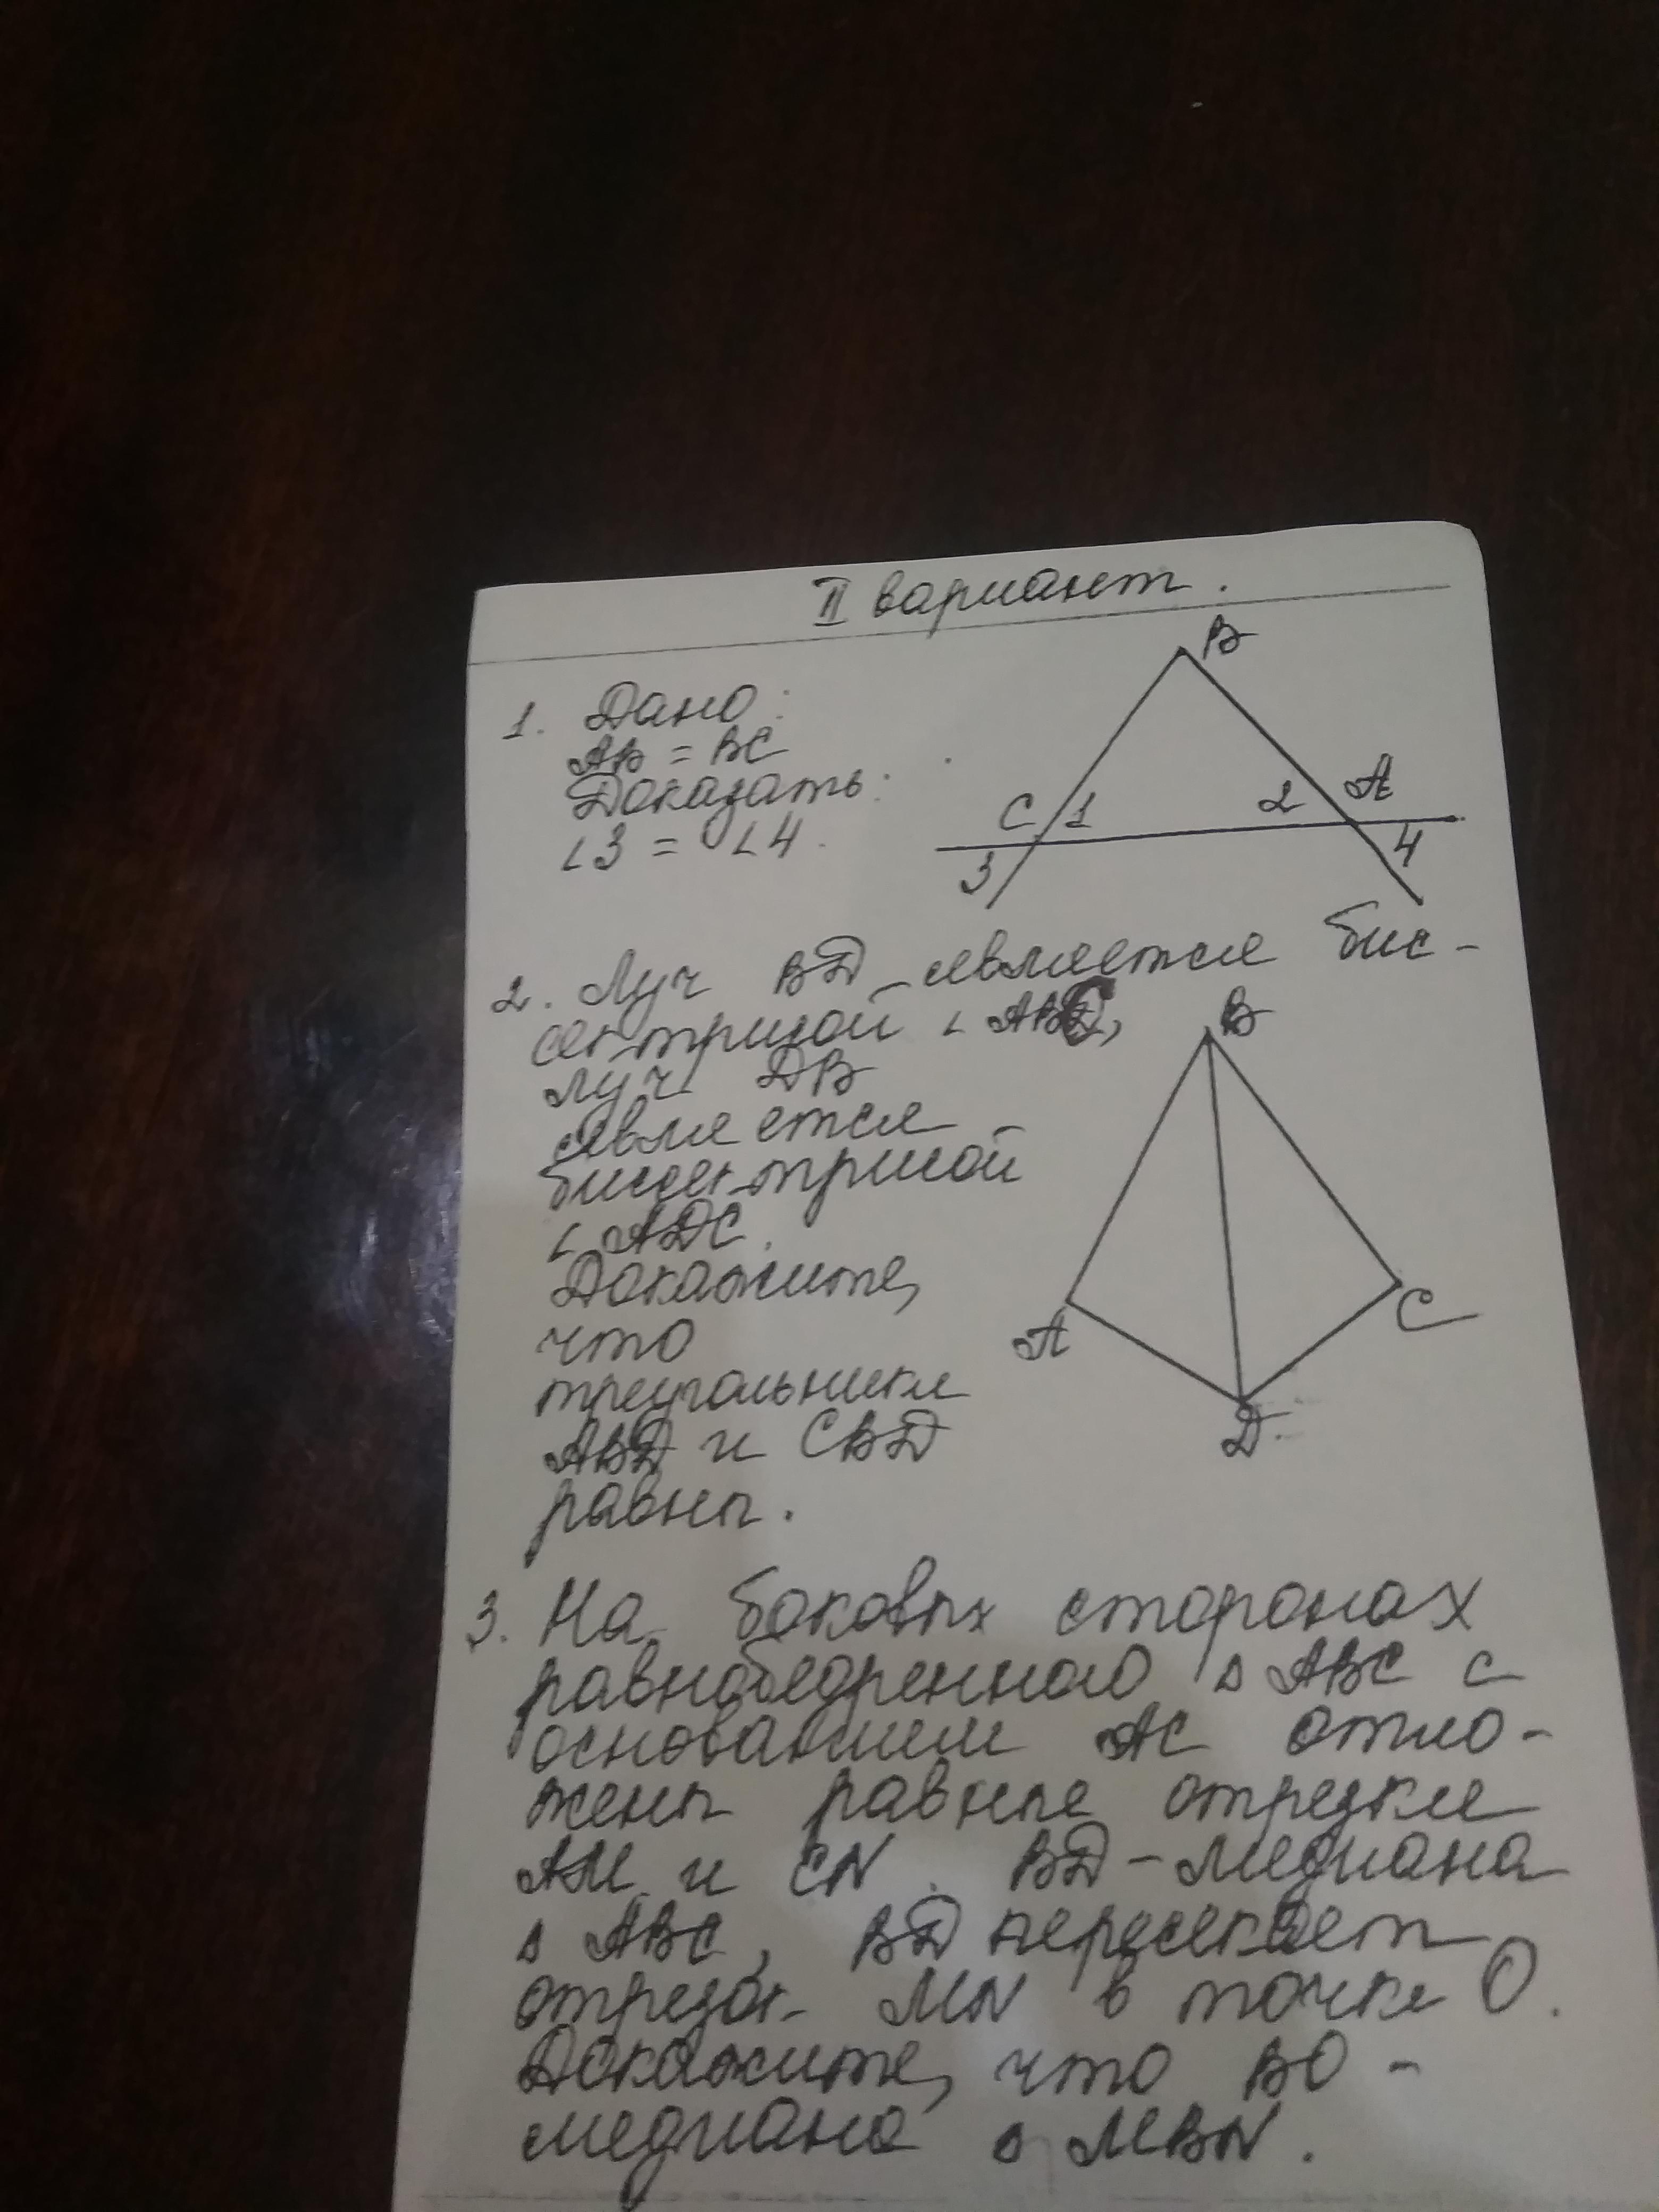 II вариант.
1. Дано:
AB = BC
Доказать:
∠3 = ∠4.
B
C 1 2 A
3 4
2. Луч BD является бис-
сектрисой ∠ABC,
луч DB
является
биссектрисой
∠ADC.
Докажите,
что
треугольники
ABD и CBD
равны.
B
A C
D
3. На боковых сторонах
равнобедренного ΔABC с
основанием AC отло-
жены равные отрезки
AM и CN. BD - медиана
ΔABC, BD пересекает
отрезок MN в точке O.
Докажите, что BO -
медиана ΔMBN.